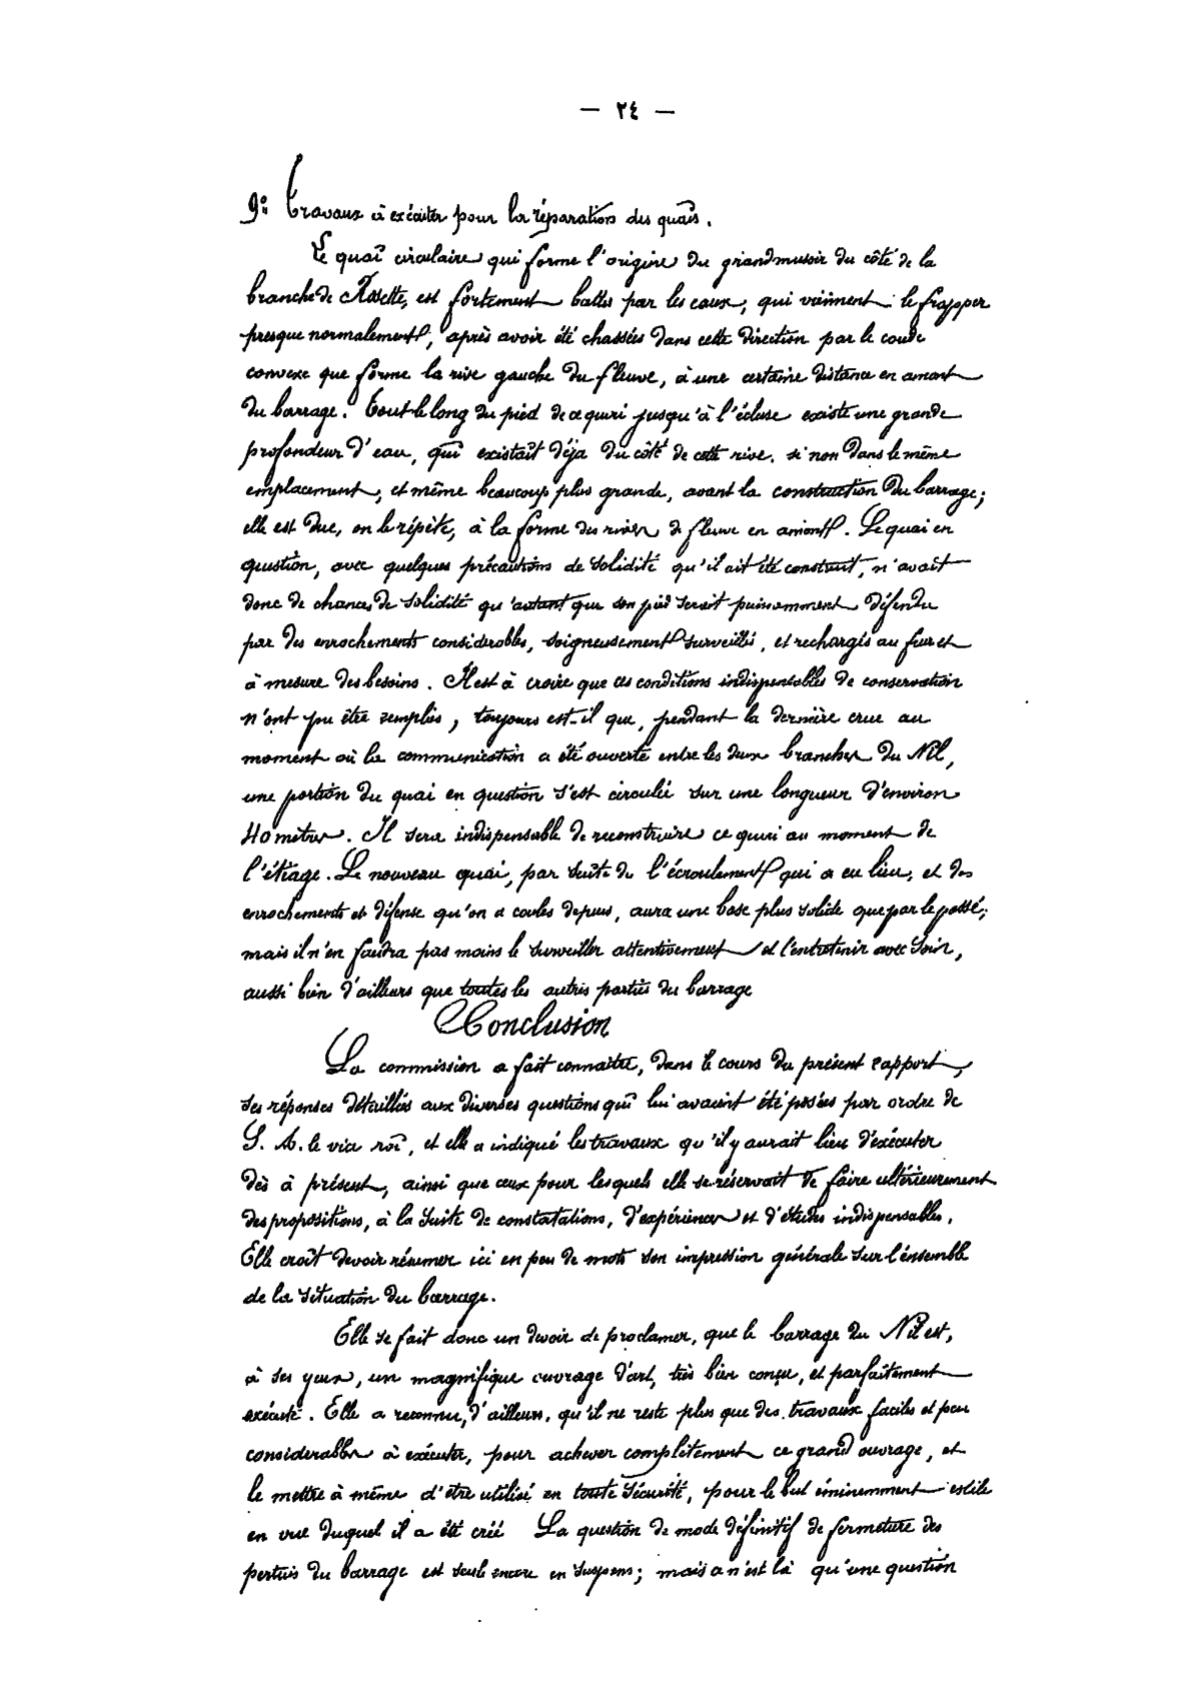 — ٢٤ —
9º: Travaux à exécuter pour la réparation des quais.
Le quai circulaire qui forme l'origine du grand musoir du côté de la
branche de Rosette, est fortement battu par les eaux, qui viennent le frapper
presque normalement, après avoir été chassées dans cette direction par le coude
convexe que forme la rive gauche du fleuve, à une certaine distance en amont
du barrage. Tout le long du pied de ce quai jusqu'à l'écluse existe une grande
profondeur d'eau, qui existait déja du côté de cette rive, si non dans le même
emplacement, et même beaucoup plus grande, avant la construction du barrage;
elle est due, on le répète, à la forme des rives de fleuve en amont. Le quai en
question, avec quelques précautions de solidité qu'il ait été construit, n'avait
donc de chances de solidité qu'autant que son pied serait puissamment défendu
par des enrochements considerables, soigneusement surveillés, et rechargés au fur et
à mesure des besoins. Il est à croire que ces conditions indispensables de conservation
n'ont pu être remplies, toujours est-il que, pendant la dernière crue au
moment où la communication a été ouverte entre les deux branches du Nil,
une portion du quai en question s'est circulée sur une longueur d'environ
40 mètres. Il sera indispensable de reconstruire ce quai au moment de
l'étiage. Le nouveau quai, par suite de l'écroulement qui a eu lieu, et des
enrochements et défense qu'on a coulés depuis, aura une base plus solide que par le passé;
mais il n'en faudra pas moins le surveiller attentivement et l'entretenir avec soin,
aussi bien d'ailleurs que toutes les autres parties du barrage
Conclusion
La commission a fait connaitre, dans le cours du présent rapport,
ses réponses détaillées aux diverses questions qui lui avaient été posées par ordre de
S. A. le vice roi, et elle a indiqué les travaux qu'il y aurait lieu d'exécuter
dès à présent, ainsi que ceux pour lesquels elle se réservait de faire ultérieurement
des propositions, à la suite de constatations, d'expériences et d'études indispensables.
Elle croit devoir résumer ici en peu de mots son impression générale sur l'ensemble
de la situation du barrage.
Elle se fait donc un devoir de proclamer, que le barrage du Nil est,
à ses yeux, un magnifique ouvrage d'art, très bien conçu, et parfaitement
exécuté. Elle a reconnu, d'ailleurs, qu'il ne reste plus que des travaux faciles et peu
considerables à exécuter, pour achever complètement ce grand ouvrage, et
le mettre à même d'être utilisé en toute sécurité, pour le but éminemment utile
en vue duquel il a été créé La question de mode définitif de fermeture des
pertuis du barrage est seule encore en suspens; mais ce n'est là qu'une question